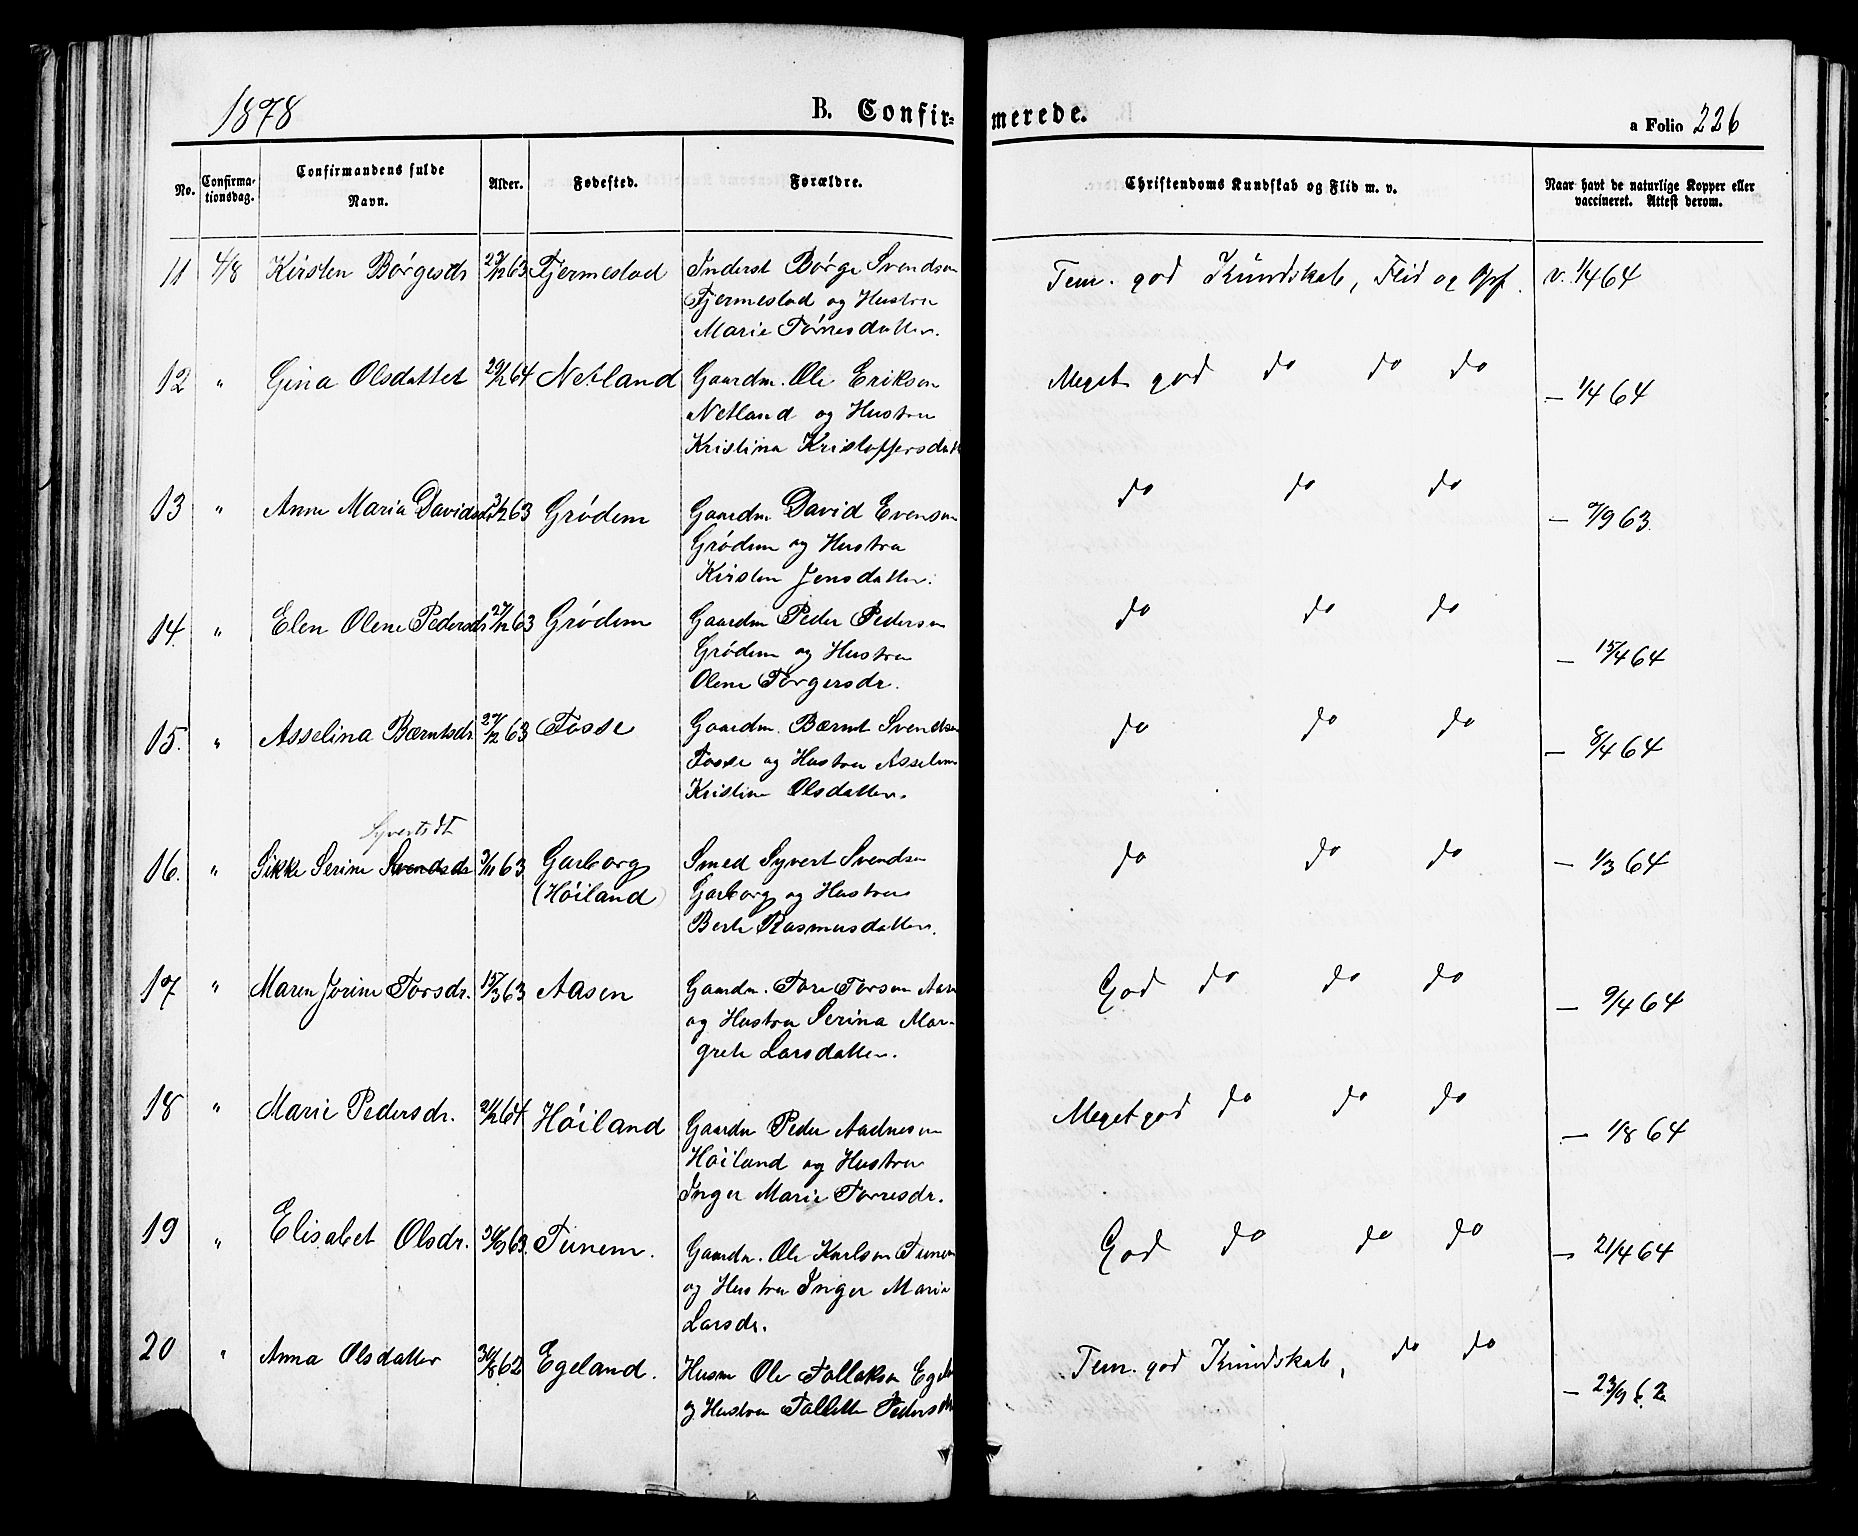 1878
B. Confir-
merede.
a Folio 226
No.
Confirma-
tionsdag.
Confirmandens fulde
Navn.
Alder.
Fødested.
Forældre.
Christendoms Kundskab og Flid m. v.
Naar havt de naturlige Kopper eller
vaccineret. Attest derom.
11 4/8 Kirsten Børgesdr 27/12 63 Fjermestad Inderst Børge Svendsen Tem. god Kundskab, Flid og Opf. v. 1/4 64
Fjermestad og Hustru
Marie Tørresdatter.
12 " Gina Olsdatter 64 Netland Gaardm. Ole Eriksen Meget god do do do — 1/4 64
Netland og Hustru
Kristina Kristoffersdatt
13 " Anne Maria Davidsdr 63 Grødem Gaardm David Evensen do do do — 63
Grødem og Hustru
Kirsten Jensdatter.
14. " Elen Olene Pedersdr 27/12 63 Grødem Gaardm Peder Pedersen do do do — 15/4 64
Grødem og Hustru
Olene Torgersdr.
15. " Asselina Bærntsdr. 27/12 63 Fosse Gaardm. Bærnt Svendsen do do do — 8/4 64
Fosse og Hustru Asseline
Kristine Olsdatter.
Syvertsdt
16. " Sikke Serine Svendsdr 63 Garborg Smed Syvert Svendsen do do do — 1/3 64
(Høiland) Garborg og Hustru
Berte Rasmusdatter.
17 " Maren Jorine Torsdr. 15/3 63 Aasen Gaardm. Tore Torsen Aase God do do do — 9/4 64
og Hustru Serina Mar-
grete Larsdatter.
18 " Marie Pedersdr. 64. Høiland Gaardm Peder Aadnesen Meget god do do do — 1/8 64
Høiland og Hustru
Inger Marie Torresdr.
19 " Elisabet Olsdr. 63. Tunem. Gaardm. Ole Karlsen Tunem God do do do — 21/4 64
og Hustru Inger Marie
Larsdr.
20 " Anna Olsdatter 30/8 62 Egeland. Husm Ole Tollaksen Egela Tem. god Kundskab, do do — 23/9 62
og Hustru Tallette Pedersdr